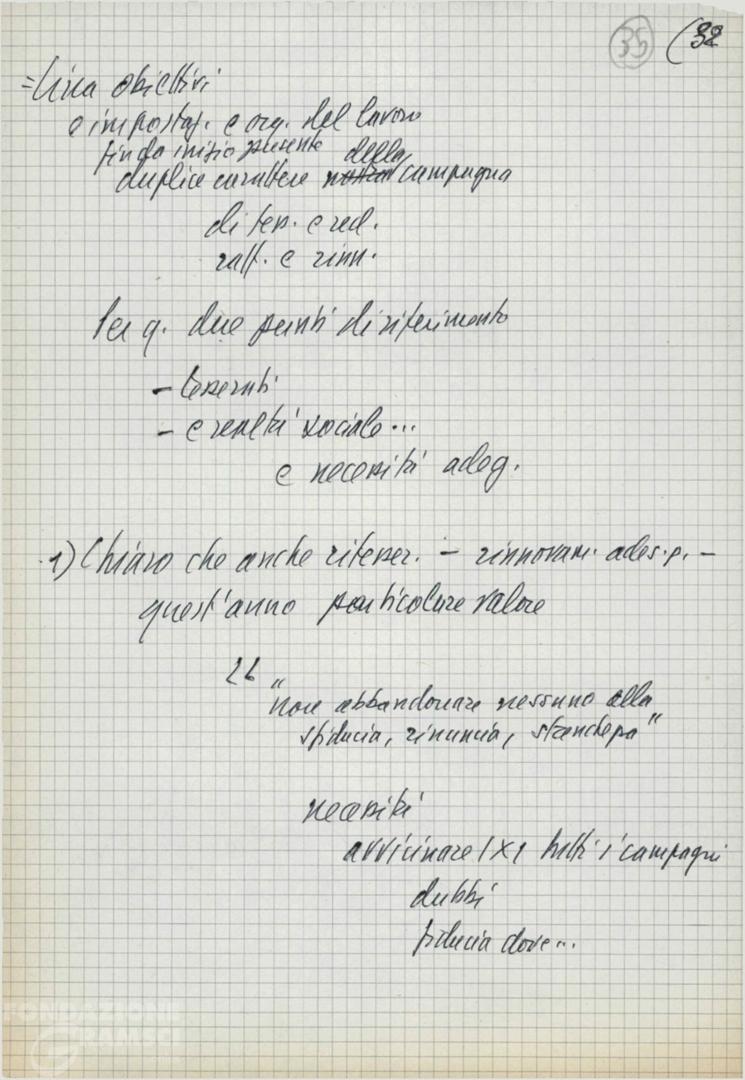 35 (32
= Circa obiettivi
e impostaz. e org. del lavoro
fin da inizio presente
duplice carattere della campagna
di tess. e recl.
raff. e rinn.
Per q. due punti di riferimento
- tesserati
- e realtà sociale...
e necessità adeg.
1) Chiaro che anche ritesser. - rinnovam. ades. p. -
quest'anno particolare valore
26
"non abbandonare nessuno alla
sfiducia, rinuncia, stanchezza"
necessità
avvicinare 1 x 1 tutti i compagni
dubbi
fiducia dove...
FONDAZIONE
GRAMSCI